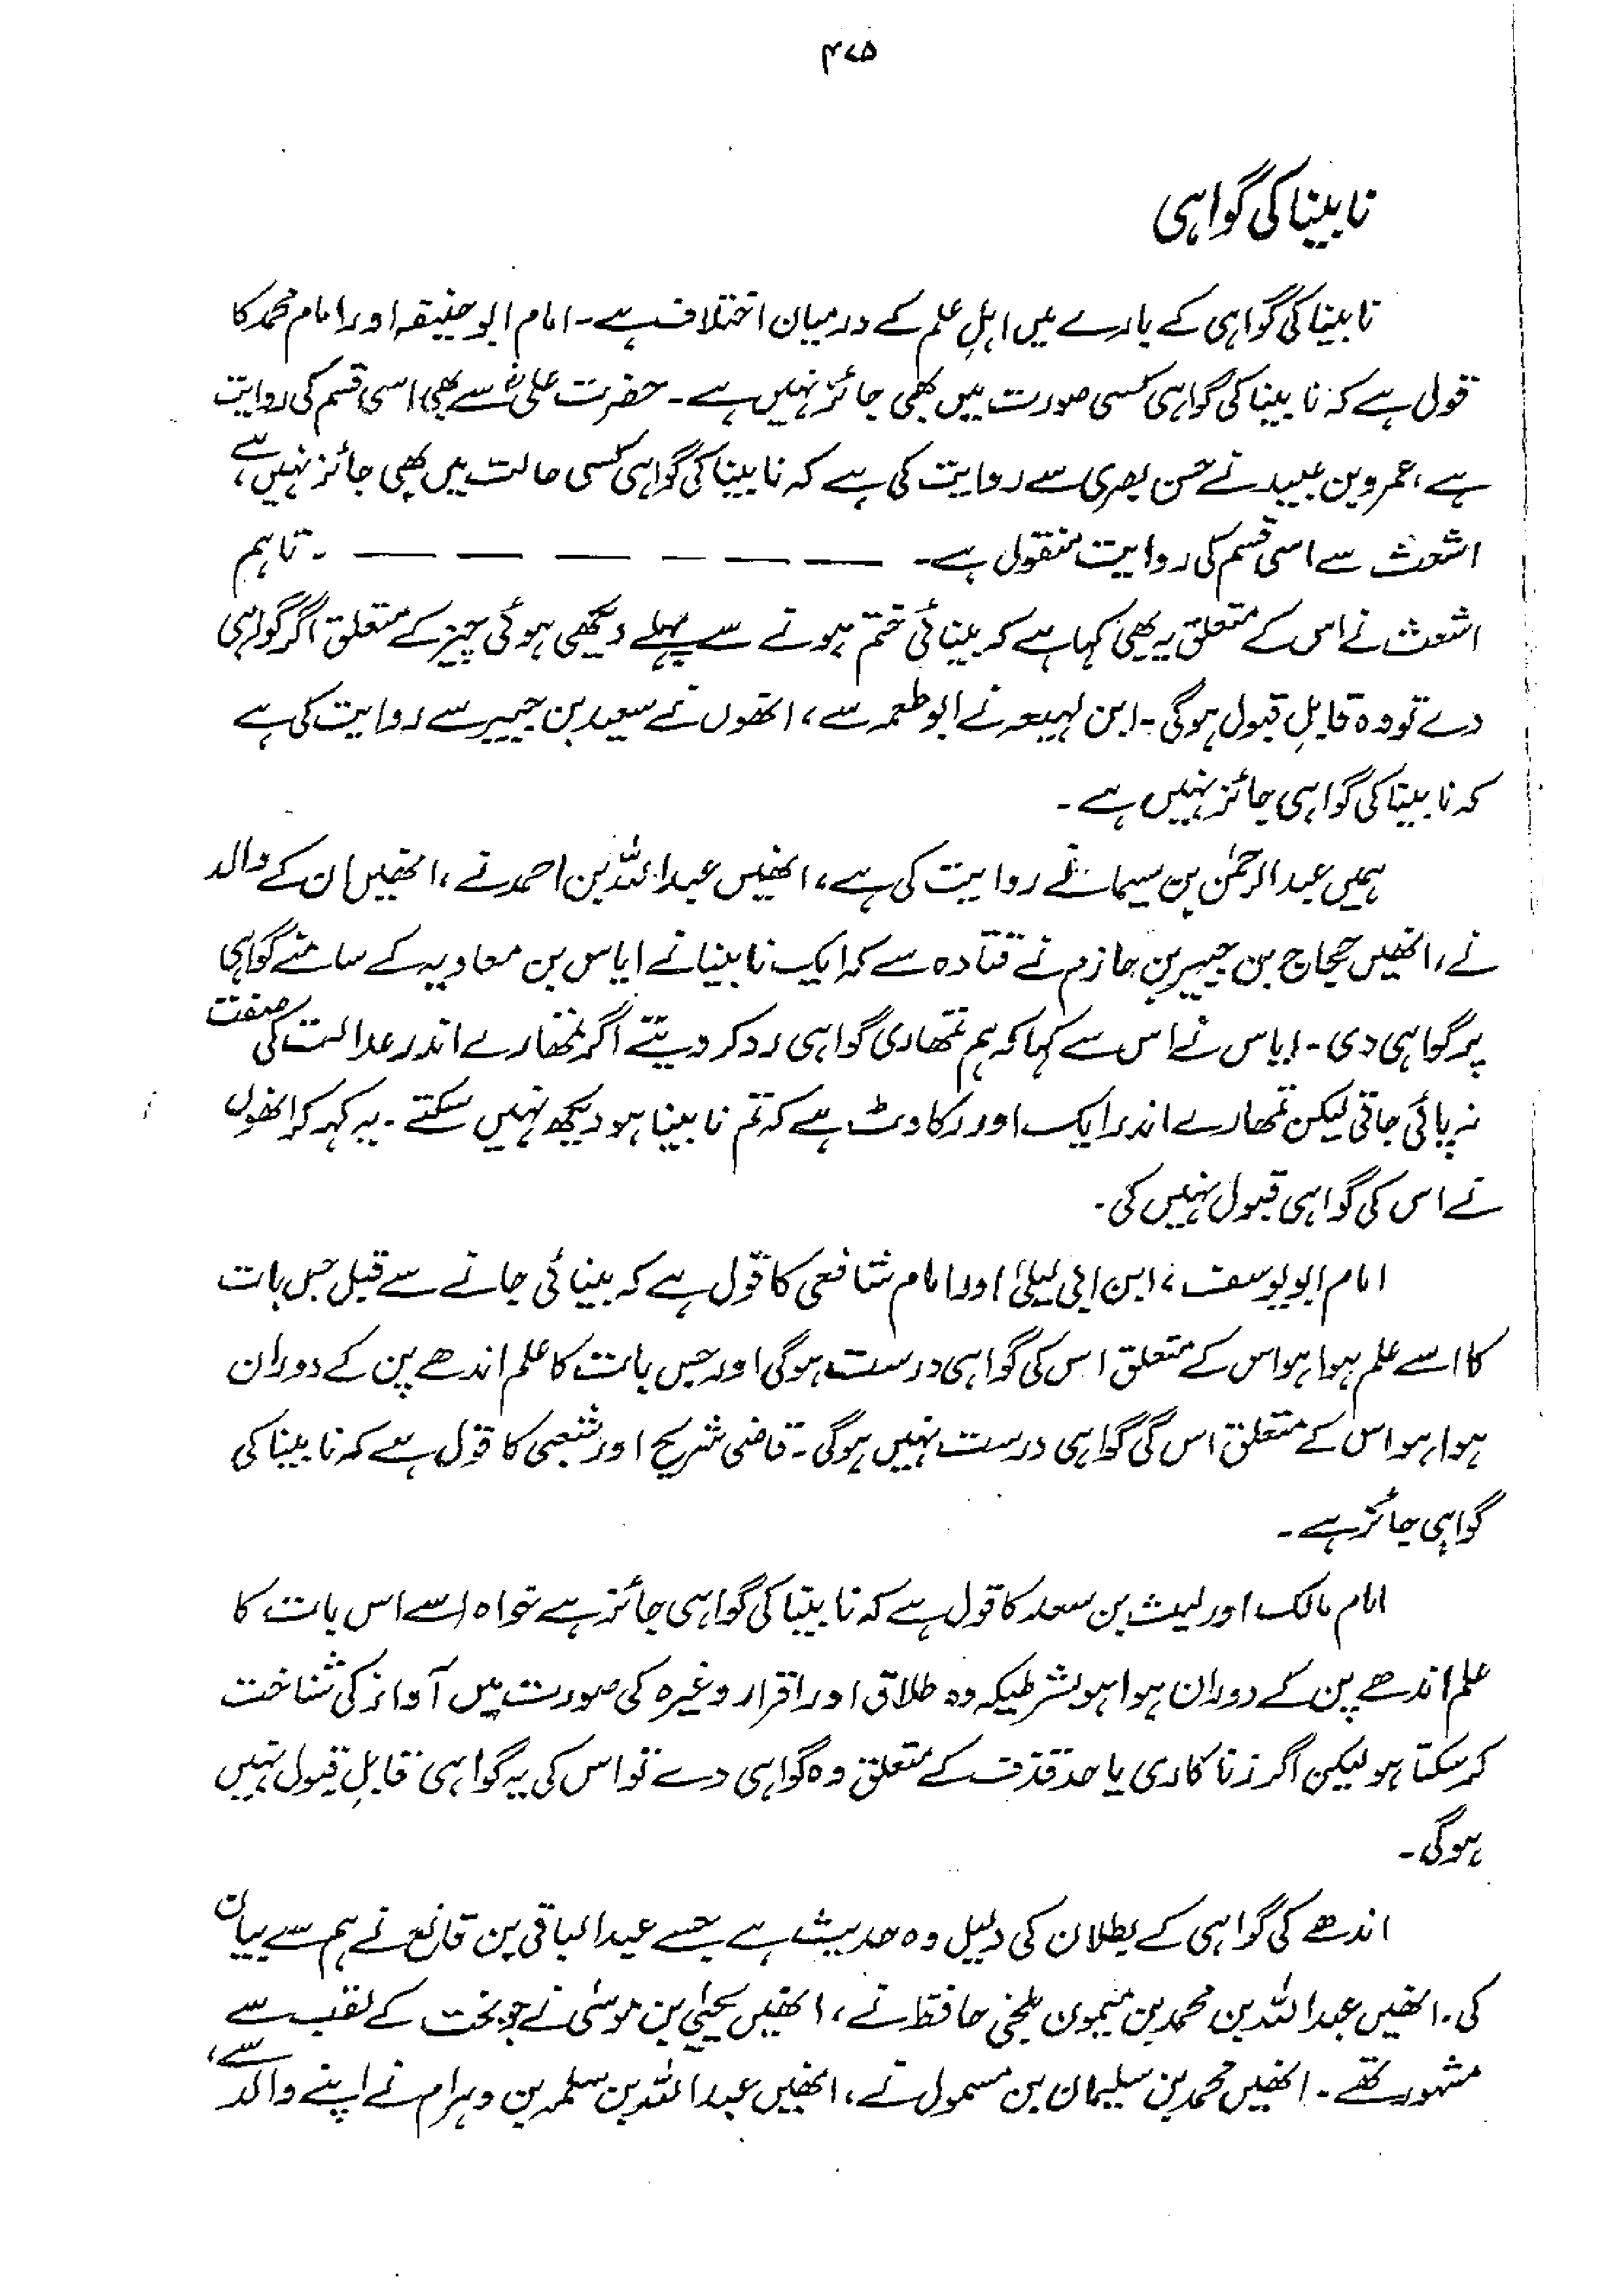 ۴۷۵
نابینا کی گواہی
نابینا کی گواہی کے بارے میں اہلِ علم کے درمیان اختلاف ہے۔ امام ابو حنیفہ اور امام محمد کا
قول ہے کہ نابینا کی گواہی کسی صورت میں بھی جائز نہیں ہے۔ حضرت علیؓ سے بھی اسی قسم کی روایت
ہے، عمرو بن عبید نے حسن بصری سے روایت کی ہے کہ نابینا کی گواہی کسی حالت میں بھی جائز نہیں ہے،
اشعث سے اسی قسم کی روایت منقول ہے۔ — — — — — — ۔ تاہم
اشعث نے اس کے متعلق یہ بھی کہا ہے کہ بینائی ختم ہونے سے پہلے دیکھی ہوئی چیز کے متعلق اگر گواہی
دے تو وہ قابلِ قبول ہوگی۔ ابن لہیعہ نے ابو طعمہ سے، انھوں نے سعید بن جبیر سے روایت کی ہے
کہ نابینا کی گواہی جائز نہیں ہے۔
ہمیں عبدالرحمٰن بن سیما نے روایت کی ہے، انھیں عبداللہ بن احمد نے، انھیں ان کے والد
نے، انھیں حجاج بن جبیر بن حازم نے قتادہ سے کہ ایک نابینا نے ایاس بن معاویہ کے سامنے گواہی
پر گواہی دی۔ ایاس نے اس سے کہا کہ ہم تمھاری گواہی رد کر دیتے اگر تمھارے اندر عدالت کی صفت
نہ پائی جاتی لیکن تمھارے اندر ایک اور رکاوٹ ہے کہ تم نابینا ہو دیکھ نہیں سکتے۔ یہ کہہ کر انھوں
نے اس کی گواہی قبول نہیں کی۔
امام ابو یوسف، ابن ابی لیلیٰ اور امام شافعی کا قول ہے کہ بینائی جانے سے قبل جس بات
کا اسے علم ہوا ہو اس کے متعلق اس کی گواہی درست ہوگی اور جس بات کا علم اندھے پن کے دوران
ہوا ہو اس کے متعلق اس کی گواہی درست نہیں ہوگی۔ قاضی شریح اور شعبی کا قول ہے کہ نابینا کی
گواہی جائز ہے۔
امام مالک اور لیث بن سعد کا قول ہے کہ نابینا کی گواہی جائز ہے خواہ اسے اس بات کا
علم اندھے پن کے دوران ہوا ہو بشرطیکہ وہ طلاق اور اقرار وغیرہ کی صورت میں آواز کی شناخت
کر سکتا ہو لیکن اگر زنا کاری یا حد قذف کے متعلق وہ گواہی دے تو اس کی یہ گواہی قابلِ قبول نہیں
ہوگی۔
اندھے کی گواہی کے بطلان کی دلیل وہ حدیث ہے جسے عبدالباقی بن قانع نے ہم سے بیان
کی۔ انھیں عبداللہ بن محمد بن میمون بلخی حافظ نے، انھیں یحییٰ بن موسیٰ نے جو بخت کے لقب سے
مشہور تھے۔ انھیں محمد بن سلیمان بن مسمول نے، انھیں عبداللہ بن سلمہ بن وہرام نے اپنے والد سے،